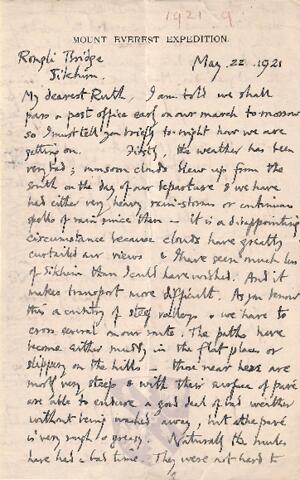 1921 9
MOUNT EVEREST EXPEDITION.
Rongli Bridge
Sikkim.
May 22 1921
My dearest Ruth, I am told we shall
pass a post office early on our march to morrow
so I must tell you briefly to-night how we are
getting on. Firstly, the weather has been
very bad; monsoon clouds blew up from the
south on the day of our departure & we have
had either very heavy rain-storms or continuous
spells of rain since then — it is a disappointing
circumstance because clouds have greatly
curtailed our views & I have seen much less
of Sikkim than I could have wished. And it
makes transport more difficult. As you know
this a country of steep valleys & we have to
cross several on our route. The paths have
become either muddy in the flat places or
slippery on the hills — those near here are
mostly very steep & with their surface of pavé
are able to endure a good deal of bad weather
without being washed away, but the pavé
is very rough & greasy. Naturally the mules
have had a bad time. They were not hard to